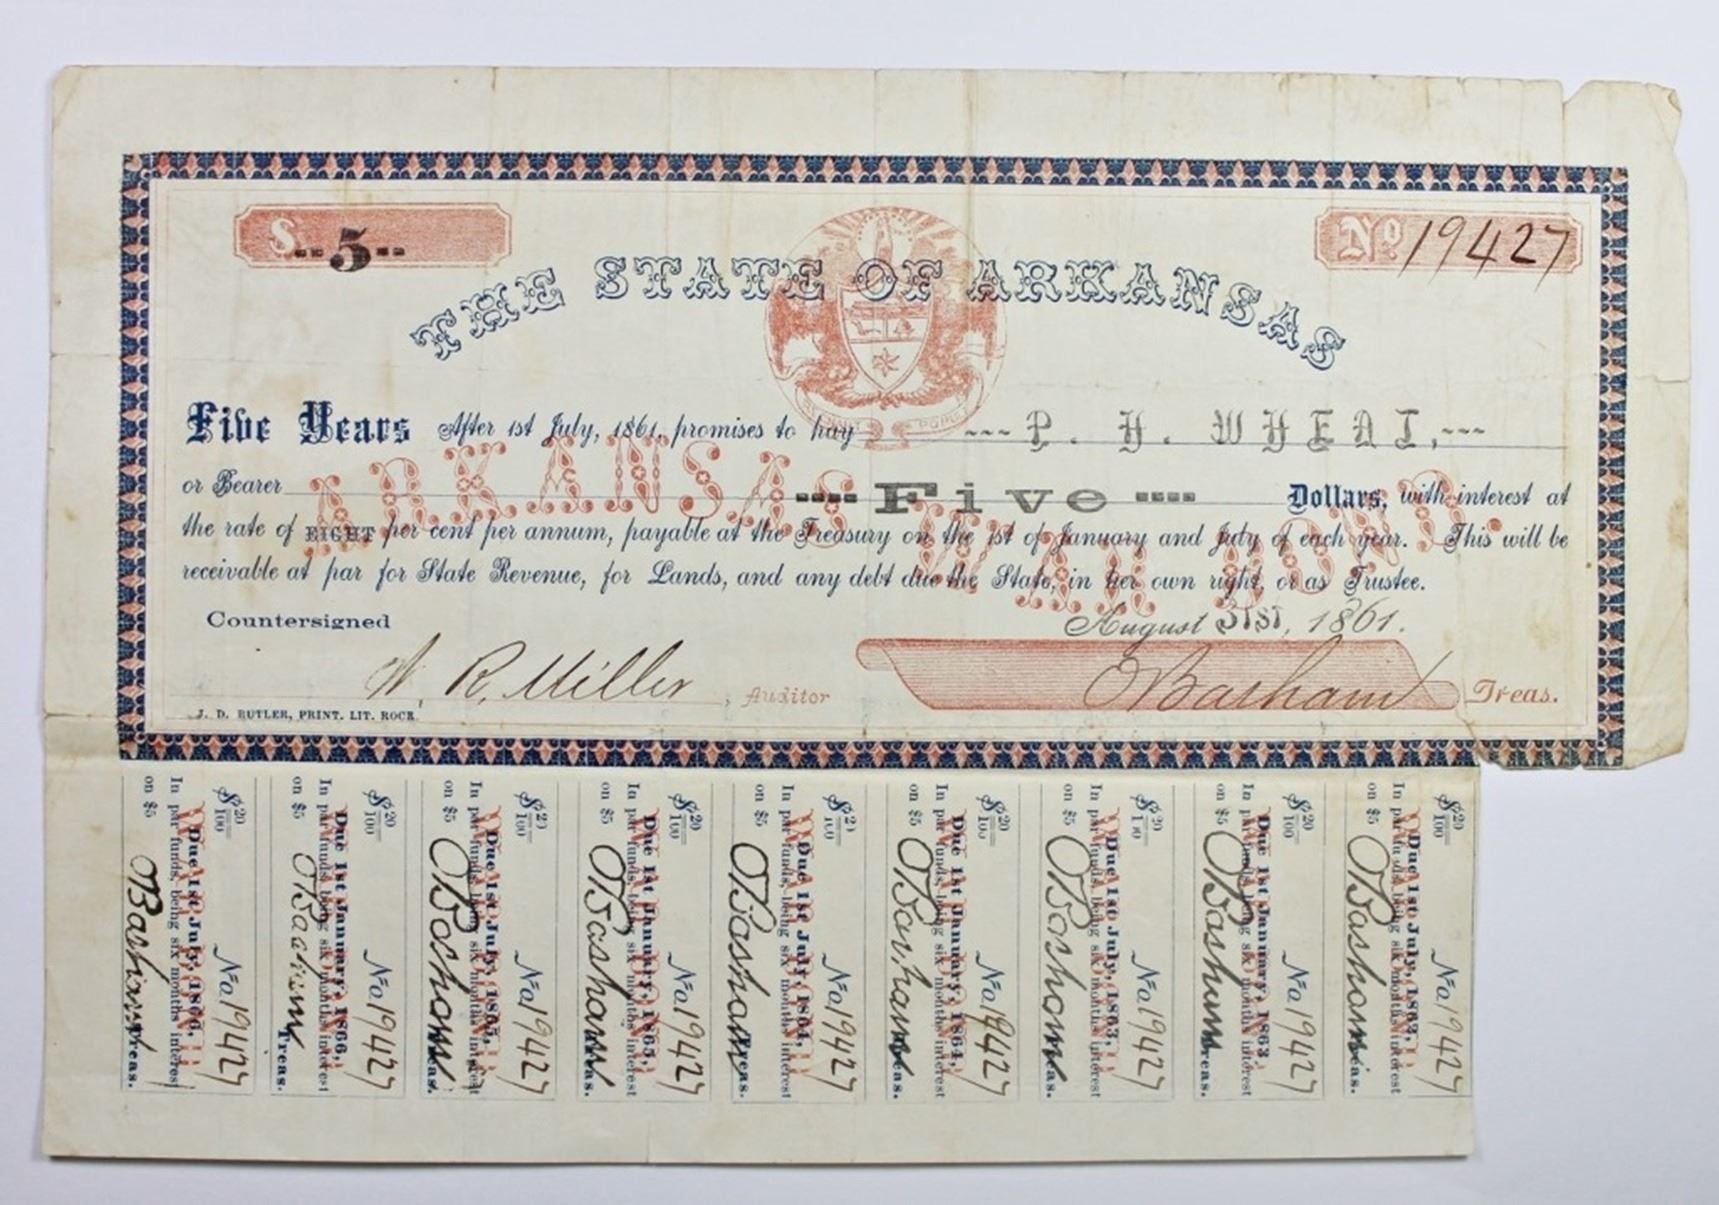 $ --5--
No. 19427
THE STATE OF ARKANSAS
Five Years After 1st July, 1861, promises to pay --- P. H. WHEAT, ---
or Bearer ---- Five ---- Dollars, with interest at
the rate of EIGHT per cent per annum, payable at the Treasury on the 1st of January and July of each year. This will be
receivable at par for State Revenue, for Lands, and any debt due the State, in her own right, or as Trustee.
ARKANSAS WAR BOND.
Countersigned
August 31ST, 1861.
W. R. Miller, Auditor
O Basham Treas.
J. D. BUTLER, PRINT. LIT. ROCK.
$ 20/100 No. 19427
Due 1st July, 1866,
In par funds, being six months interest
on $5 O Basham Treas.
$ 20/100 No. 19427
Due 1st January, 1866,
In par funds, being six months interest
on $5 O Basham Treas.
$ 20/100 No. 19427
Due 1st July, 1865,
In par funds, being six months interest
on $5 O Basham Treas.
$ 20/100 No. 19427
Due 1st January, 1865,
In par funds, being six months interest
on $5 O Basham
$ 20/100 No. 19427
Due 1st July, 1864,
In par funds, being six months interest
on $5 O Basham Treas.
$ 20/100 No. 19427
Due 1st January, 1864,
In par funds, being six months interest
on $5 O Basham Treas.
$ 20/100 No. 19427
Due 1st July, 1863,
In par funds, being six months interest
on $5 O Basham Treas.
$ 20/100 No. 19427
Due 1st January, 1863,
In par funds, being six months interest
on $5 O Basham Treas.
$ 20/100 No. 19427
Due 1st July, 1862,
In par funds, being six months interest
on $5 O Basham Treas.